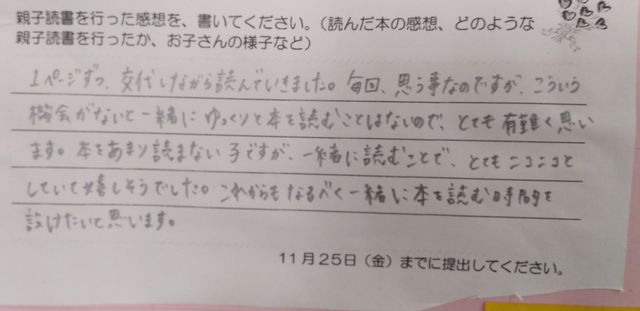 親子読書を行った感想を、書いてください。（読んだ本の感想、どのような
親子読書を行ったか、お子さんの様子など）
1ページずつ、交代しながら読んでいきました。毎回、思う事なのですが、こういう
機会がないと一緒にゆっくりと本を読むことはないので、とても有難く思い
ます。本をあまり読まない子ですが、一緒に読むことで、とてもニコニコと
していて嬉しそうでした。これからもなるべく一緒に本を読む時間を
設けたいと思います。
11月25日（金）までに提出してください。